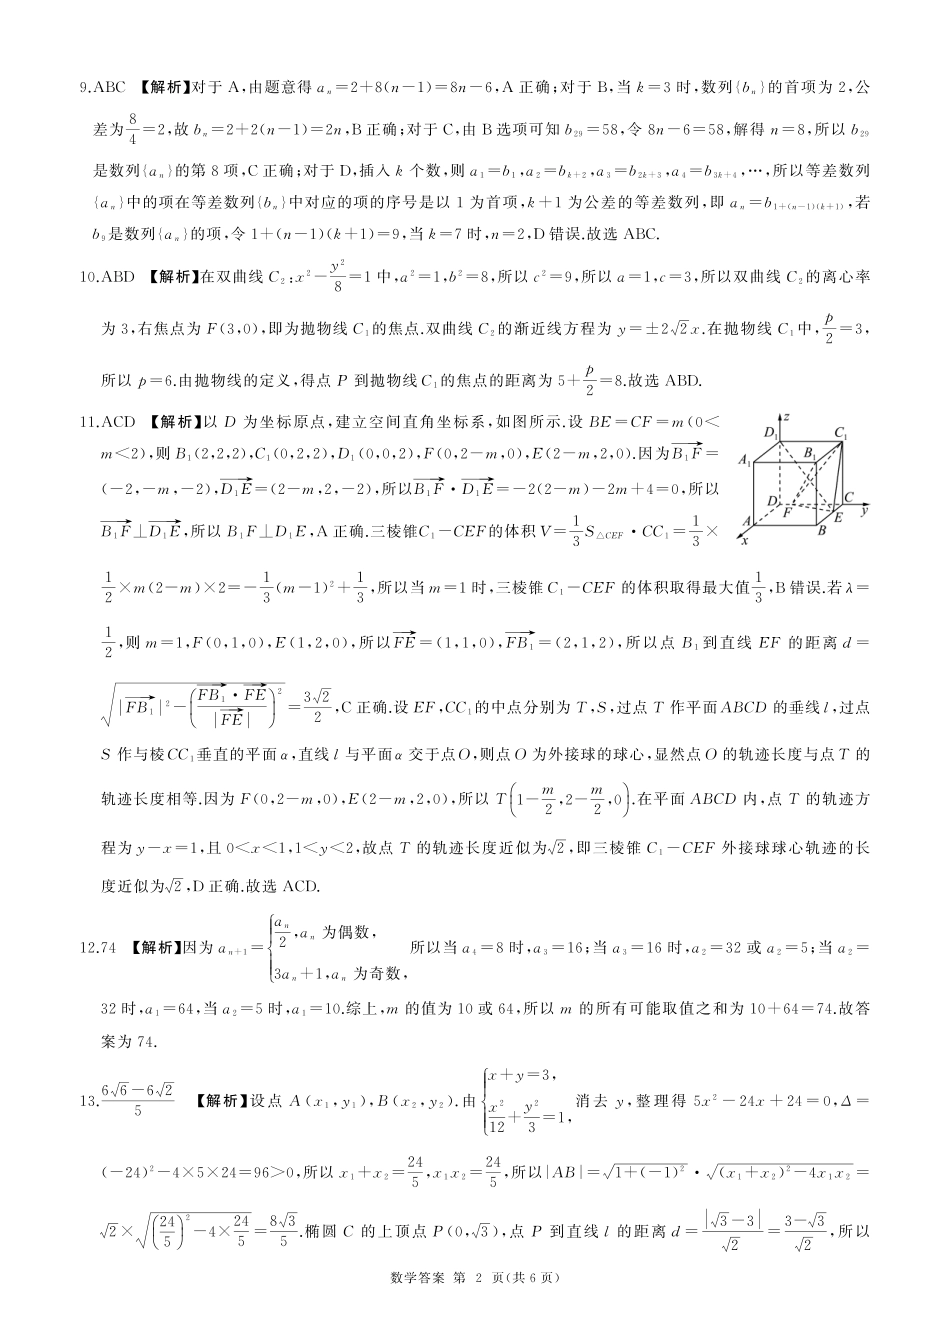 9.ABC 【解析】对于 A,由题意得 aₙ=2+8(n-1)=8n-6,A 正确;对于 B,当 k=3 时,数列{bₙ}的首项为 2,公
差为8/4=2,故 bₙ=2+2(n-1)=2n,B 正确;对于 C,由 B 选项可知 b₂₉=58,令 8n-6=58,解得 n=8,所以 b₂₉
是数列{aₙ}的第 8 项,C 正确;对于 D,插入 k 个数,则 a₁=b₁,a₂=b_{k+2},a₃=b_{2k+3},a₄=b_{3k+4},…,所以等差数列
{aₙ}中的项在等差数列{bₙ}中对应的项的序号是以 1 为首项,k+1 为公差的等差数列,即 aₙ=b_{1+(n-1)(k+1)},若
b₉是数列{aₙ}的项,令 1+(n-1)(k+1)=9,当 k=7 时,n=2,D 错误.故选 ABC.
10.ABD 【解析】在双曲线 C₂:x²-y²/8=1 中,a²=1,b²=8,所以 c²=9,所以 a=1,c=3,所以双曲线 C₂的离心率
为 3,右焦点为 F(3,0),即为抛物线 C₁的焦点.双曲线 C₂的渐近线方程为 y=±2√2x.在抛物线 C₁中,p/2=3,
所以 p=6.由抛物线的定义,得点 P 到抛物线C₁的焦点的距离为 5+p/2=8.故选 ABD.
11.ACD 【解析】以 D 为坐标原点,建立空间直角坐标系,如图所示.设 BE=CF=m(0<
m<2),则 B₁(2,2,2),C₁(0,2,2),D₁(0,0,2),F(0,2-m,0),E(2-m,2,0).因为→B₁F=
(-2,-m,-2),→D₁E=(2-m,2,-2),所以→B₁F·→D₁E=-2(2-m)-2m+4=0,所以
→B₁F⊥→D₁E,所以 B₁F⊥D₁E,A 正确.三棱锥C₁-CEF的体积 V=1/3S_{△CEF}·CC₁=1/3×
z
D₁
C₁
A₁
B₁
D
C
F
E
y
A
B
x
1/2×m(2-m)×2=-1/3(m-1)²+1/3,所以当 m=1 时,三棱锥 C₁-CEF 的体积取得最大值1/3,B 错误.若 λ=
1/2,则 m=1,F(0,1,0),E(1,2,0),所以→FE=(1,1,0),→FB₁=(2,1,2),所以点 B₁到直线 EF 的距离 d=
√(|→FB₁|²-(→FB₁·→FE/|→FE|)²)=3√2/2,C 正确.设 EF,CC₁的中点分别为 T,S,过点 T 作平面ABCD 的垂线 l,过点
S 作与棱CC₁垂直的平面 α,直线 l 与平面α 交于点O,则点 O 为外接球的球心,显然点 O 的轨迹长度与点 T 的
轨迹长度相等.因为 F(0,2-m,0),E(2-m,2,0),所以 T(1-m/2,2-m/2,0).在平面 ABCD 内,点 T 的轨迹方
程为 y-x=1,且 0<x<1,1<y<2,故点 T 的轨迹长度近似为√2,即三棱锥 C₁-CEF 外接球球心轨迹的长
度近似为√2,D 正确.故选 ACD.
12.74 【解析】因为 aₙ₊₁={aₙ/2,aₙ 为偶数, 3aₙ+1,aₙ 为奇数, 所以当 a₄=8 时,a₃=16;当 a₃=16 时,a₂=32 或 a₂=5;当 a₂=
32 时,a₁=64,当 a₂=5 时,a₁=10.综上,m 的值为 10 或 64,所以 m 的所有可能取值之和为 10+64=74.故答
案为 74.
13.(6√6-6√2)/5 【解析】设点 A(x₁,y₁),B(x₂,y₂).由{x+y=3, x²/12+y²/3=1, 消去 y,整理得 5x²-24x+24=0,Δ=
(-24)²-4×5×24=96>0,所以 x₁+x₂=24/5,x₁x₂=24/5,所以|AB|=√(1+(-1)²)·√((x₁+x₂)²-4x₁x₂)=
√2×√((24/5)²-4×24/5)=8√3/5.椭圆 C 的上顶点 P(0,√3),点 P 到直线 l 的距离 d=|√3-3|/√2=(3-√3)/√2,所以
数学答案 第 2 页(共 6 页)